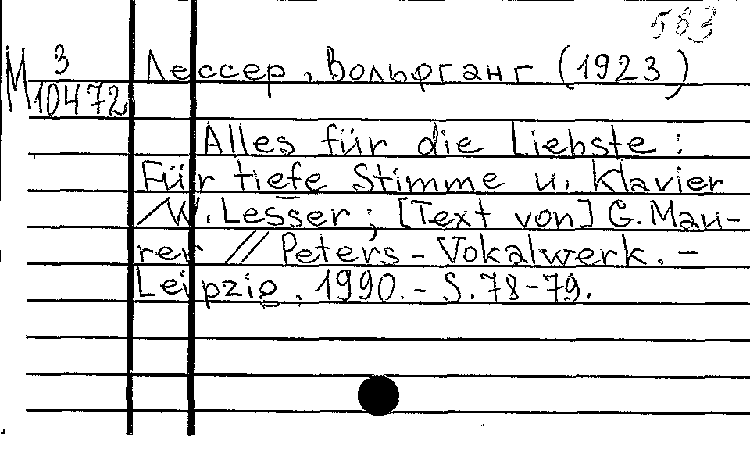 583
М 3
10472
Лессер, Вольфганг (1923)
Alles für die Liebste:
Für tiefe Stimme u. Klavier
/W. Lesser; [Text von] G. Mau-
rer // Peters - Vokalwerk. -
Leipzig, 1990. - S. 78-79.